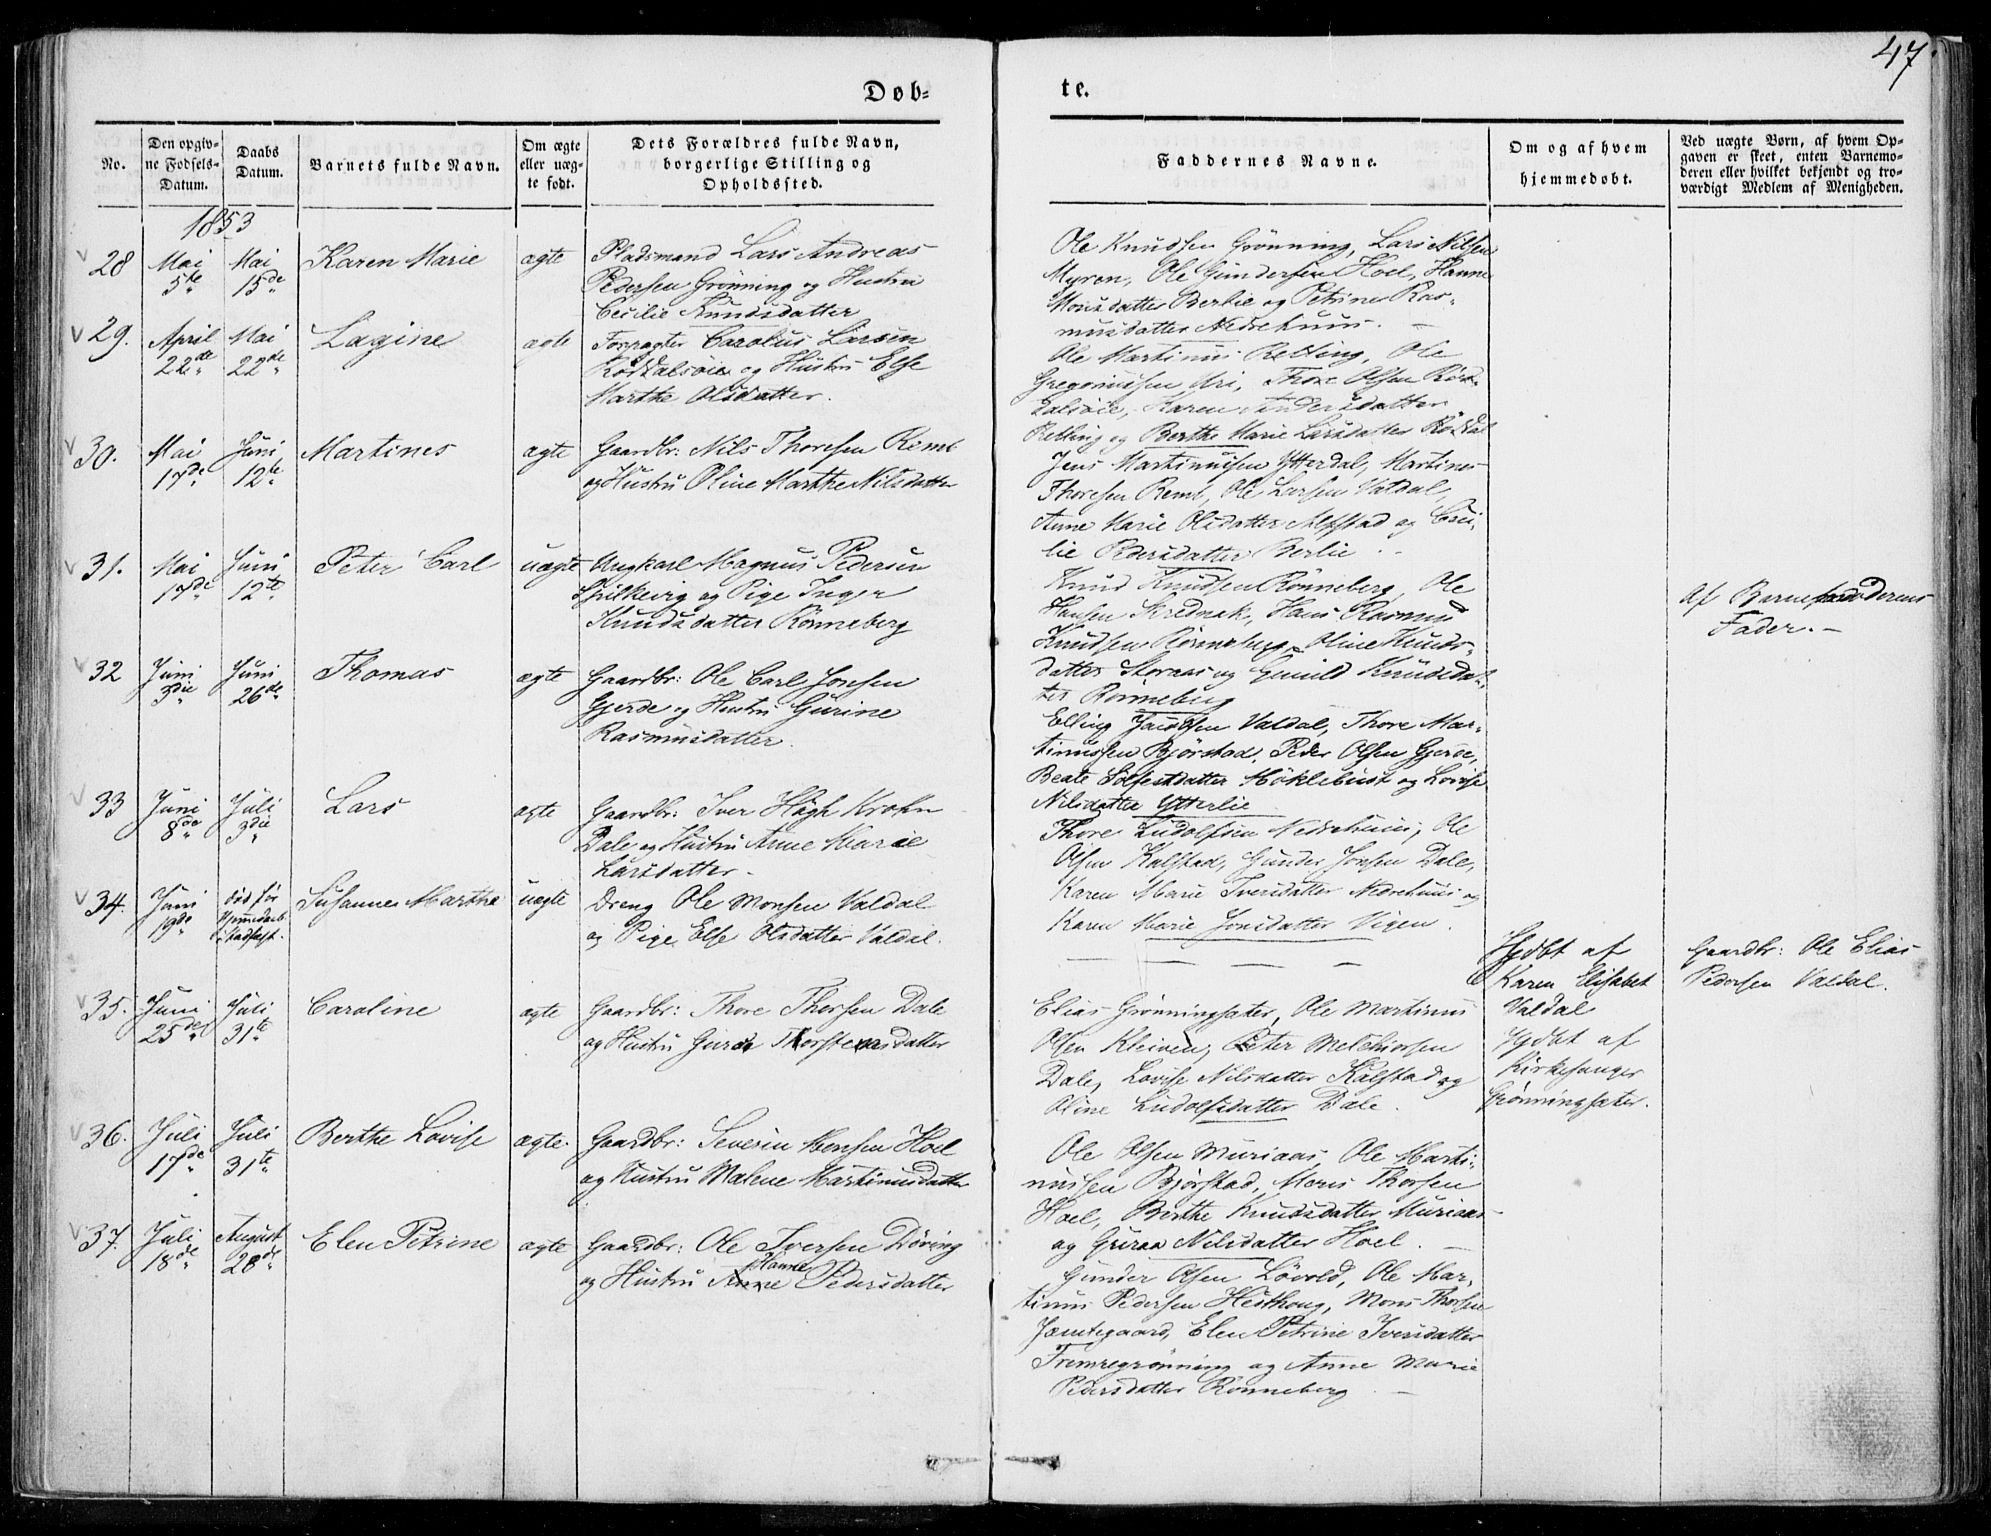 47.
Døb-
te.
No.
Den opgiv-
ne Fødsels-
Datum.
Daabs
Datum.
Barnets fulde Navn.
Om ægte
eller uæg-
te født.
Dets Forældres fulde Navn,
borgerlige Stilling og
Opholdssted.
Faddernes Navne.
Om og af hvem
hjemmedøbt.
Ved uægte Børn, af hvem Op-
gaven er skeet, enten Barnemo-
deren eller hvilket bekjendt og tro-
værdigt Medlem af Menigheden.
1853
28
Mai
5te
Mai
15de
Karen Marie
ægte
Pladsmand Lars Andreas
Pedersen Grønning og Hustru
Cecilie Knudsdatter
Ole Knudsen Grønning, Lars Nilsen
Myren, Ole Gundersen Hoel, Hanne
Monsdatter Berlie og Petrine Ras-
musdatter Nedrehuus. —
29.
April
22de
Mai
22de
Lagine
ægte
Forpagter Carolus Larsen
Rødalsøie og Hustru Else
Marthe Olsdatter.
Ole Martinus Relling, Ole
Gregoriussen Uri, Thore Olsen
Karen Andersdatter
Relling og Berthe Marie Larsdatter
30.
Mai
17de
Juni
12te
Martines
ægte
Gaardbr: Nils Thoresen Remb
og Hustru Oline Marthe Nilsdatter
Jens Martinussen Ytterdal, Martines
Thoresen Remb, Ole Larsen Valdal,
Anne Marie Olsdatter Alfstad og Ceci-
lie Pedersdatter Berlie. -
31.
Mai
17de
Juni
12te
Peter Carl
uægte
Ungkarl Magnus Pedersen
Spilkevig og Pige Inger
Knudsdatter Rønneberg
Knud Knudsen Rønneberg, Ole
Hansen Skrednak, Hans Rasmus
Knudsen Rønneberg, Oline Knuds-
datter Storaas og Gunild Knudsdat-
ter Rønneberg
Af Barnefaderens
Fader. -
32
Juni
3die
Juni
26de
Thomas
ægte
Gaardbr: Ole Carl Jonsen
Gjerde og Hustru Gurine
Rasmusdatter.
Elling Jacobsen Valdal, Thore Mar-
tinussen Bjørstad, Peder Olsen Gjerde,
Beate Solfestdatter Møklebust og Lovise
Nilsdatter Ytterlie
33
Juni
8de
Juli
3die
Lars
ægte
Gaardbr: Iver Høgh Krohn
Dale og Hustru Anne Marie
Larsdatter. -
Thore Ludolfsen Nedrehuus, Ole
Olsen Kalstad, Gunder Jonsen Dale,
Karen Marie Iversdatter Nedrehuus og
Karen Marie Jonsdatter Vigen.
34.
Juni
19de
død før
Stadfæst.
Susanne Marthe
uægte
Dreng Ole Monsen Valdal
og Pige Else Olsdatter Valdal.
— — — —
Hjdbt af
Karen Elisabet
Valdal
Gaardbr: Ole Elias
Pedersen Valdal.
35.
Juni
25de
Juli
31te
Caroline
ægte
Gaardbr: Thore Thorsen Dale
og Hustru Guroe Thorstensdatter
Elias Grønningsæter, Ole Martinus
Olsen Kleiven, Peter Melchiorsen
Dale, Lovise Nilsdatter Kalstad og
Oline Ludolfsdatter Dale.
Hjdbt af
Kirkesanger
Grønningsæter.
36.
Juli
17de
Juli
31te
Berthe Lovise
ægte.
Gaardbr: Severin Monsen Hoel
og Hustru Malene Martinusdatter
Ole Olsen Muriaas, Ole Marti-
nussen Bjørstad, Mons Thorsen
Hoel, Berthe Knudsdatter Muriaas
og Nilsdatter Hoel. —
37.
Juli
18de
August
28de
Elen Petrine
ægte
Gaardbr: Ole Iversen Døving
Hanne
og Hustru Anne Pedersdatter
Gunder Olsen Løvold, Ole Mar-
tinus Pedersen Hesthoug, Mons Thorsen
Jemtegaard, Elen Petrine Iversdatter
Fremregrønning og Anne Marie
Pedersdatter Rønneberg. —